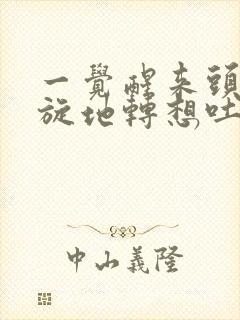 一覺醒来頭
旋地轉想吐
中山義隆